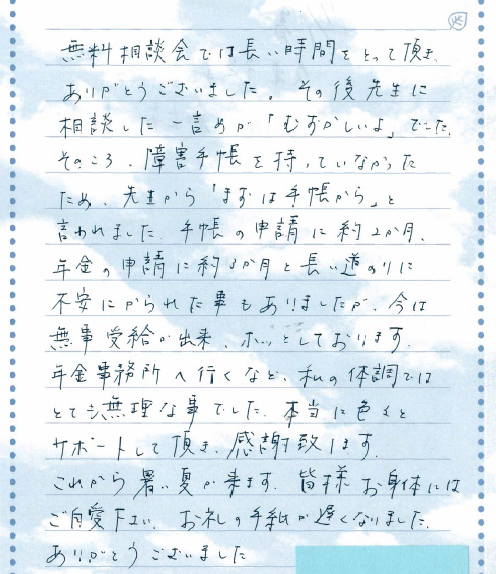 無料相談会では長い時間をとって頂き、
ありがとうございました。その後先生に
相談した一言めが「むずかしいよ」でした。
そのころ、障害手帳を持っていなかった
ため、先生から「まずは手帳から」と
言われました。手帳の申請に約2か月、
年金の申請に約3か月と長い道のりに
不安にかられた事もありましたが、今は
無事受給が出来、ホッとしております。
年金事務所へ行くなど、私の体調では
とても無理な事でした。本当に色々と
サポートして頂き、感謝致します。
これから暑い夏が来ます。皆様お身体には
ご自愛下さい。お礼の手紙が遅くなりました。
ありがとうございました